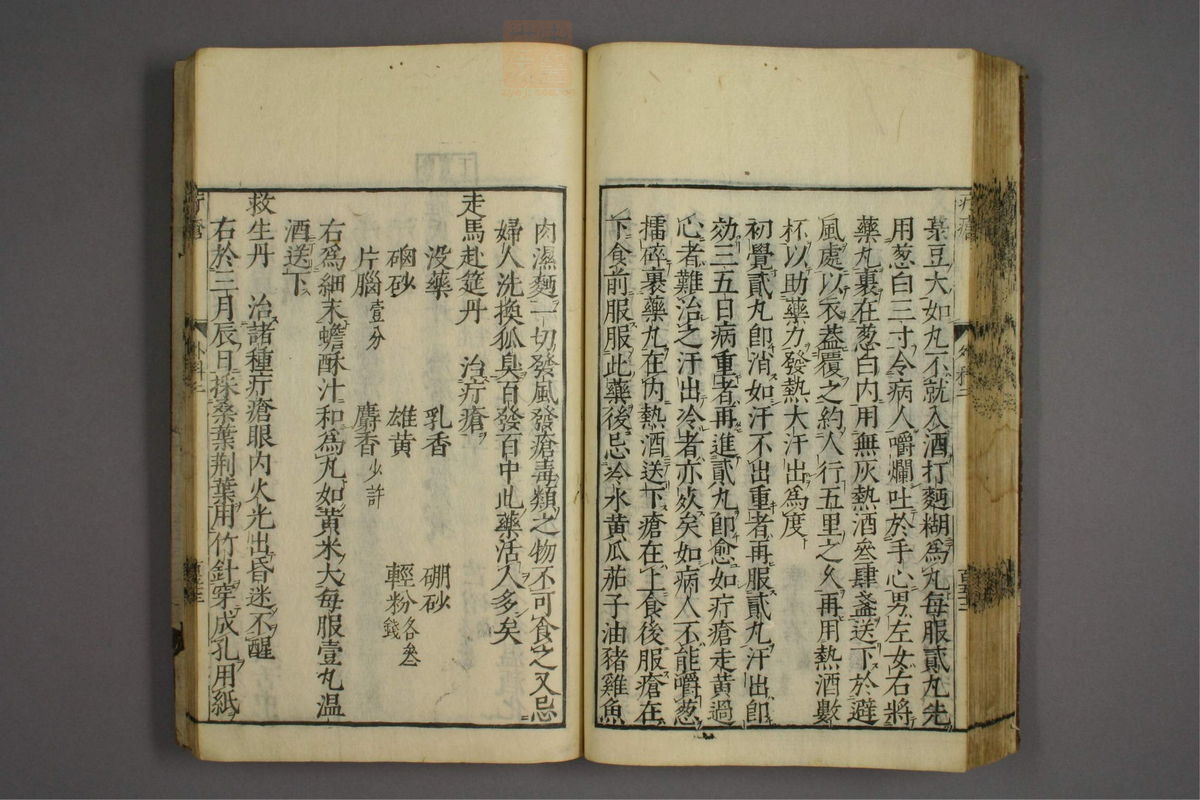 菉豆大如丸不就入酒打麵糊為丸每服貳丸先
用葱白三寸令病人嚼爛吐於手心男左女右將
藥丸裹在葱白内用無灰熱酒叄肆盞送下於避
風處以衣蓋覆之約人行五里之久再用熱酒數
杯以助藥力發熱大汗出為度
初覺貳丸即消如汗不出重者再服貳丸汗出即
効三五日病重者再進貳丸即愈如疔瘡走黄過
心者難治之汗出冷者亦死矣如病人不能嚼葱
擂碎裹藥丸在内熱酒送下瘡在上食後服瘡在
下食前服服此藥後忌冷水黄瓜茄子油猪雞魚
肉濕麵一切發風發瘡毒類之物不可食之又忌
婦人洗換狐臭百發百中此藥活人多矣
走馬赴筵丹 治疔瘡
没藥 乳香 硼砂
硇砂 雄黄 輕粉各叄錢
片腦壹分 麝香少許
右為細末蟾酥汁和為丸如黄米大每服壹丸温
酒送下
救生丹 治諸種疔瘡眼内火光出昏迷不醒
右於三月辰日採桑葉荆葉用竹針穿成孔用紙
疔瘡
外科二